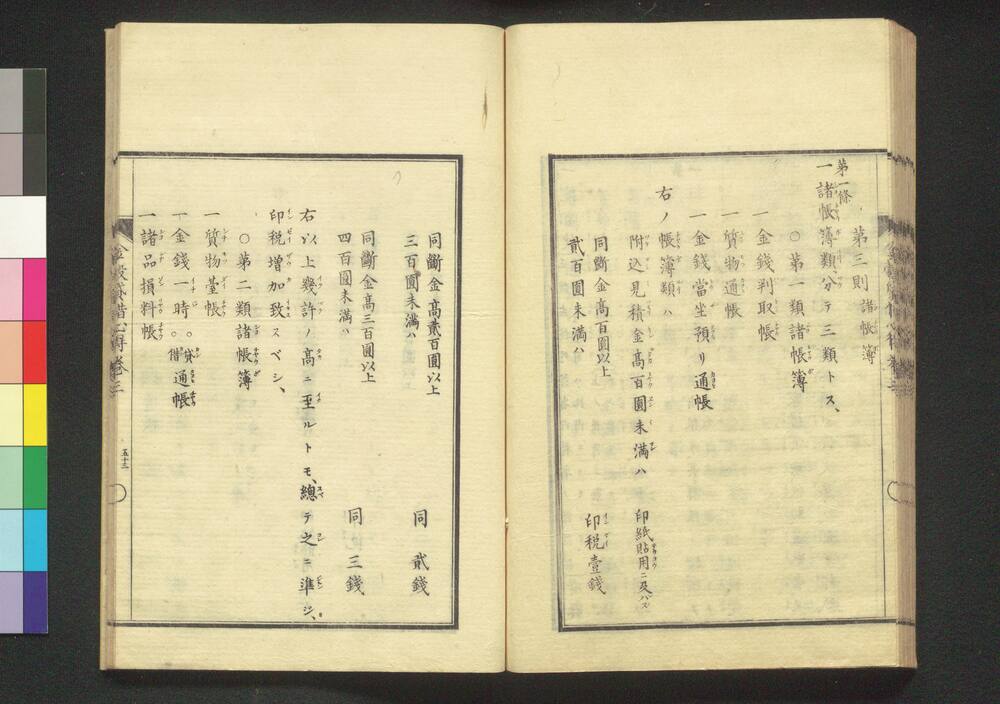 第三則 諸帳簿
第一條
一 諸帳簿類分テ三類トス、
○第一類諸帳簿
一金錢判取帳
一質物通帳
一金錢當坐預リ通帳
右ノ帳簿類ハ
附込見積金高百圓未滿ハ 印紙貼用ニ及バズ
同斷金高百圓以上
貳百圓未滿ハ 印税壹錢
同斷金高貳百圓以上
三百圓未滿ハ 同 貳錢
同斷金高三百圓以上
四百圓未滿ハ 同 三錢
右以上幾許ノ高ニ至ルトモ、總テ之ニ準ジ、
印税增加致スベシ、
○第二類諸帳簿
一質物臺帳
一金錢一時。貸。借通帳
一諸品損料帳
五十三